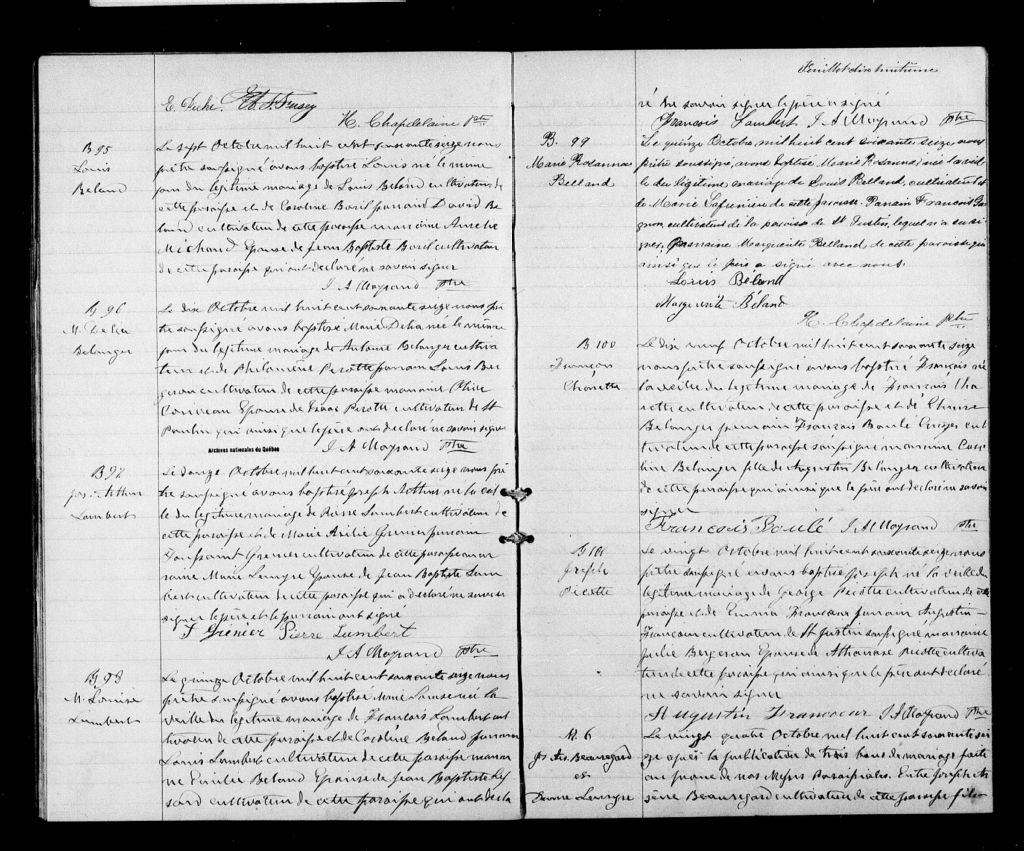 H. Chapdelaine ptre
B 95
Louis
Beland
Le sept Octobre mil huit cent soixante seize nous
prêtre soussigné avons baptisé Louis né le même
jour du légitime mariage de Louis Beland cultivateur de
cette paroisse et de Caroline Baril parrain David Be
land cultivateur de cette paroisse marraine Aurelie
Michaud Epouse de Jean Baptiste Baril cultivateur
de cette paroisse qui ont déclaré ne savoir signer
J A Mayrand Ptre
B 96
M. Delia
Belanger
Le dix Octobre mil huit cent soixante seize nous prê
tre soussigné avons baptisé Marie Delia née le même
jour du légitime mariage de Antoine Belanger cultiva
teur et de Philomène Picotte parrain Louis Ber
geron cultivateur de cette paroisse marraine
Epouse de Isaac Picotte cultivateur de St
Paulin qui ainsi que le père ont déclaré ne savoir signer
Archives nationales du Québec
J A Mayrand Ptre
B 97
Jos. Arthur
Lambert
Le douze Octobre mil huit cent soixante seize nous prê
tre soussigné avons baptisé Joseph Arthur né la veil
le du légitime mariage de Pierre Lambert cultivateur de
cette paroisse et de Marie Grenier parrain
Toussaint Grenier cultivateur de cette paroisse mar
raine Marie Lemyre Epouse de Jean Baptiste Lam
bert cultivateur de cette paroisse qui a déclaré ne savoir
signer le père et le parrain ont signé
T Grenier Pierre Lambert
J A Mayrand Ptre
B 98
M. Louise
Lambert
Le quinze Octobre mil huit cent soixante seize nous
prêtre soussigné avons baptisé Marie Louise née la
veille du légitime mariage de François Lambert cul
tivateur de cette paroisse et de Caroline Béland parrain
Louis Lambert cultivateur de cette paroisse marrai
ne Emilie Beland Epouse de Jean Baptiste Les
sard cultivateur de cette paroisse qui ont décla
Feuillet dix huitième
ré ne savoir signer le père a signé
François Lambert J A Mayrand Ptre
B. 99
Marie Rosanna
Belland
Le quinze Octobre, mil huit cent soixante seize, nous
prêtre soussigné, avons baptisé Marie Rosanna, née la veil
le du légitime mariage de Louis Belland, cultivateur et
de Marie de cette paroisse. Parrain François Ga
gnon cultivateur de la paroisse de St Justin, lequel n'a su si
gner; marraine Marguerite Belland de cette paroisse qui
ainsi que le père a signé avec nous.
Louis Béland
Marguerite Béland
H. Chapdelaine ptre
B 100
François
Charette
Le dix neuf Octobre mil huit cent soixante seize
nous prêtre soussigné avons baptisé François né
la veille du légitime mariage de François Cha
rette cultivateur de cette paroisse et de
Belanger parrain François Boulé cul
tivateur de cette paroisse soussigné marraine
Belanger fille de Augustin Belanger cultivateur
de cette paroisse qui ainsi que le père ont déclaré ne savoir
signer
Francois Boulé J A Mayrand Ptre
B 101
Joseph
Picotte
Le vingt Octobre mil huit cent soixante seize nous
prêtre soussigné avons baptisé Joseph né la veille du
légitime mariage de George Picotte cultivateur de cette
paroisse et de Emma Francoeur parrain Augustin
Francoeur cultivateur de St Justin soussigné marraine
Julie Bergeron Epouse de Athanase Picotte cultiva
teur de cette paroisse qui ainsi que le père ont déclaré
ne savoir signer
Augustin Francoeur J A Mayrand Ptre
M. 6
Jos. Ars. Beauregard
et
Lemyre
Le vingt quatre Octobre mil huit cent soixante sei
ze après la publication de trois bans de mariage faite
au prône de nos Messes Paroissiales. Entre Joseph Ar
sène Beauregard cultivateur de cette paroisse fils